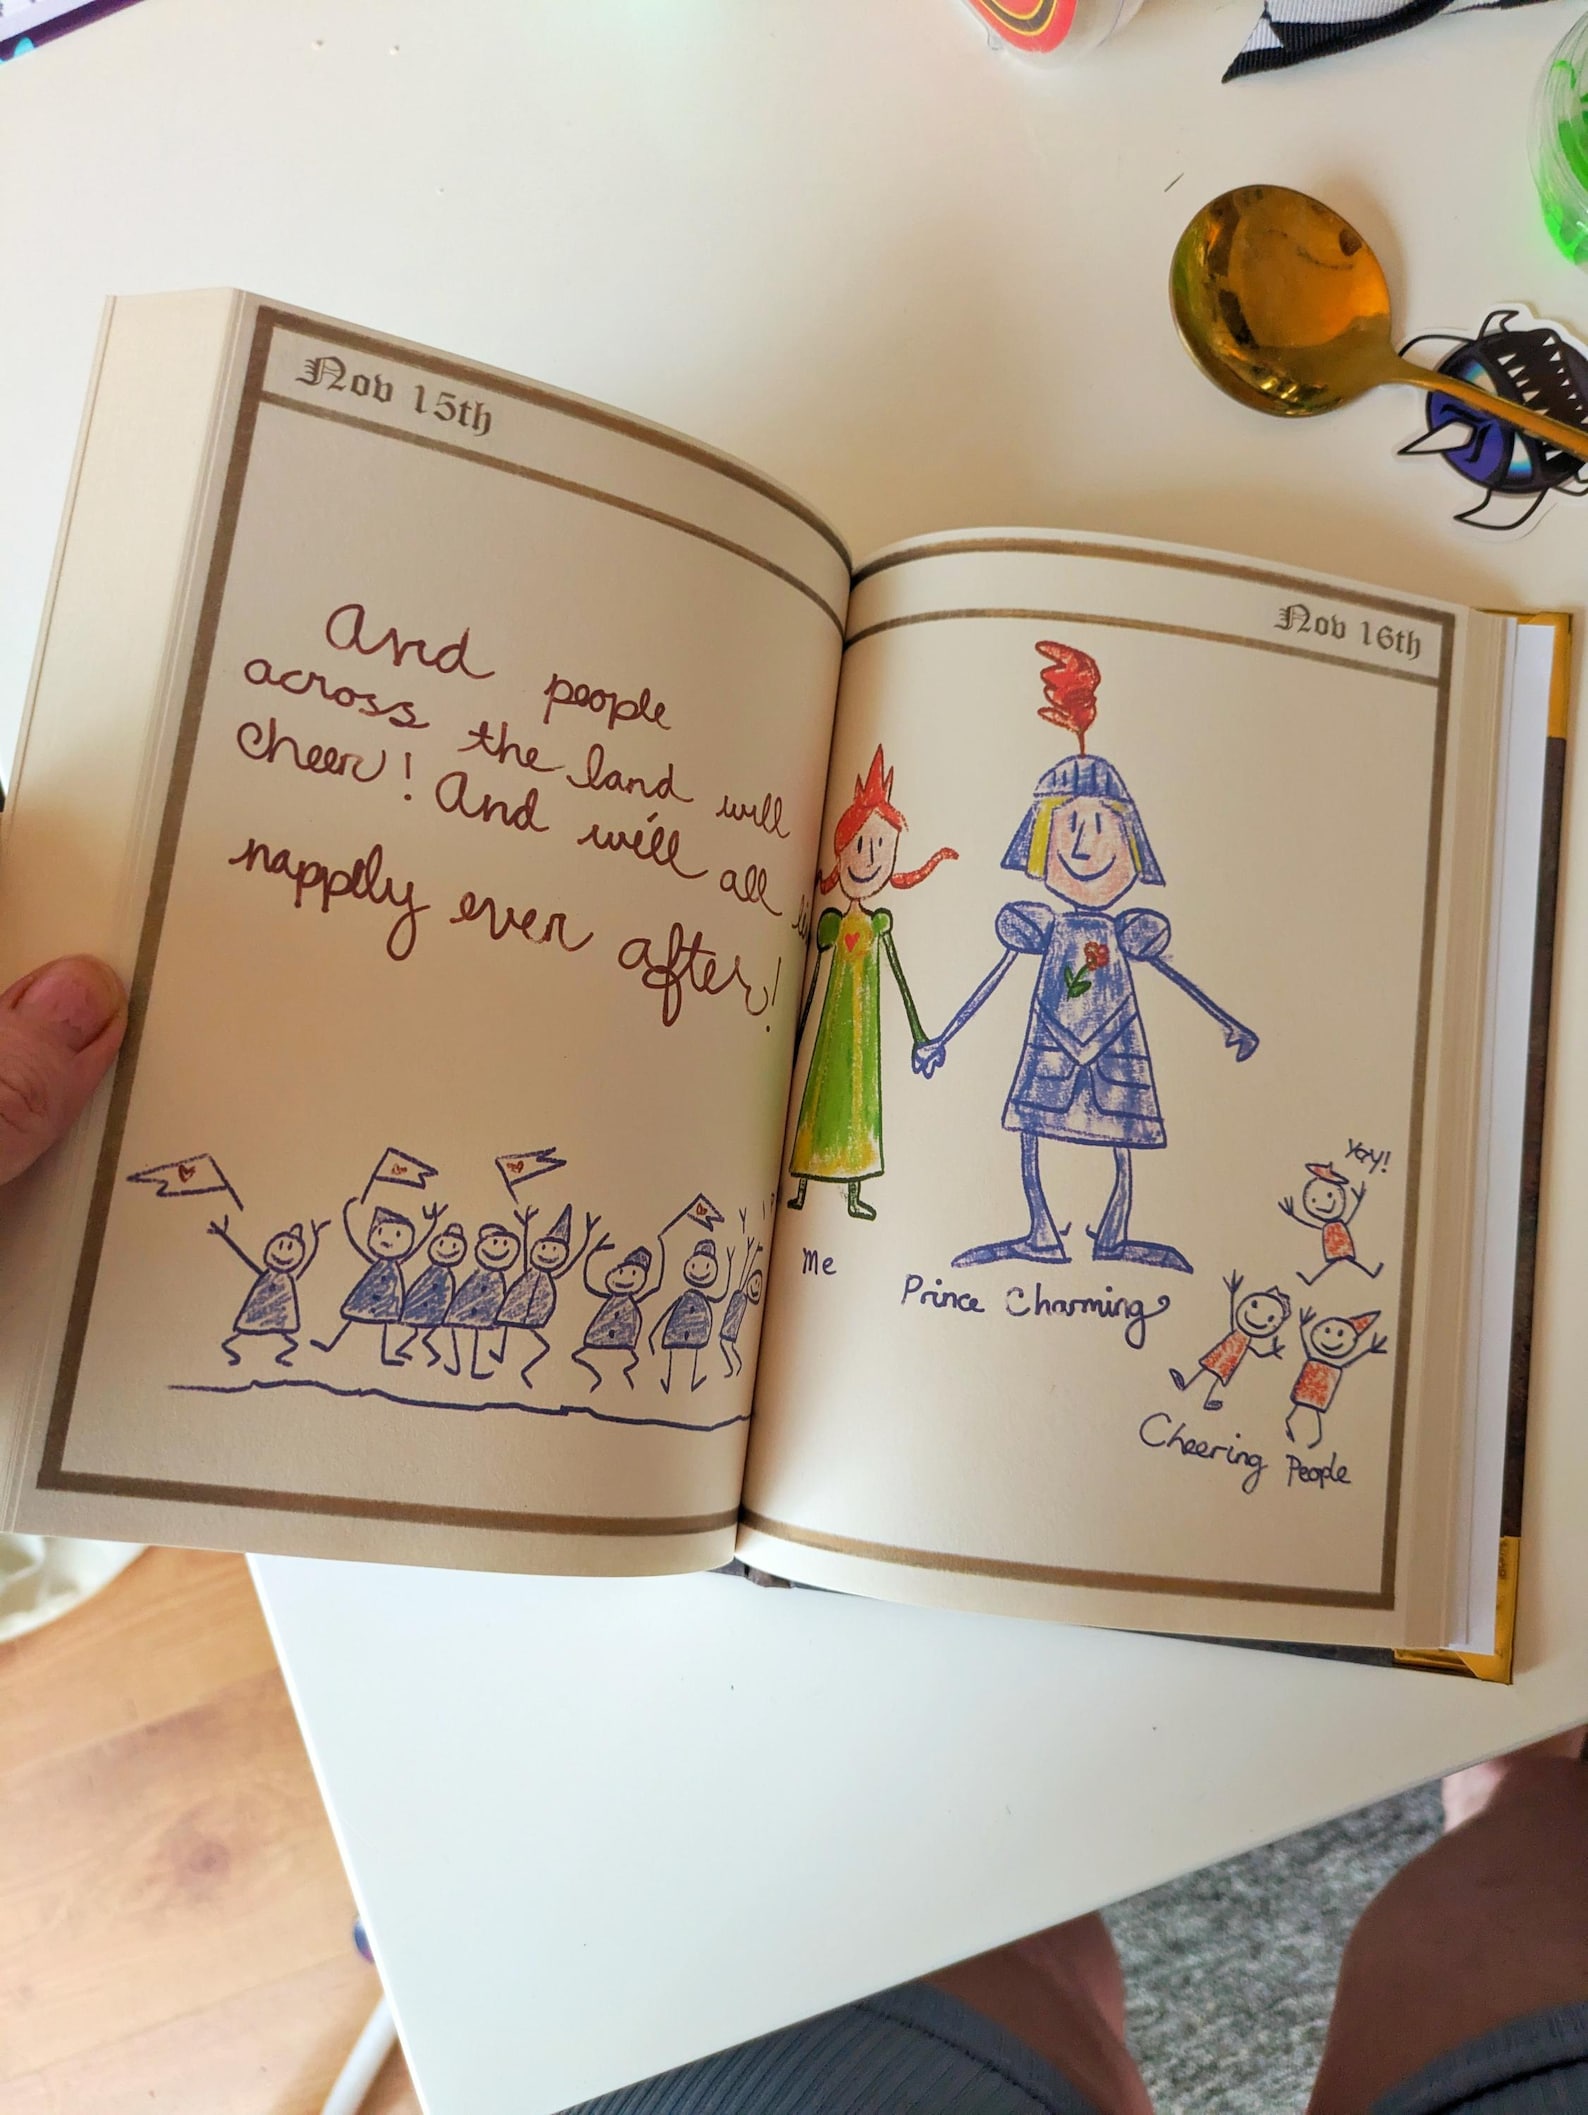 Nov 15th
And people
across the land will
cheer! And we'll all
happily ever after!
Nov 16th
Yay!
Me
Prince Charming
Cheering People